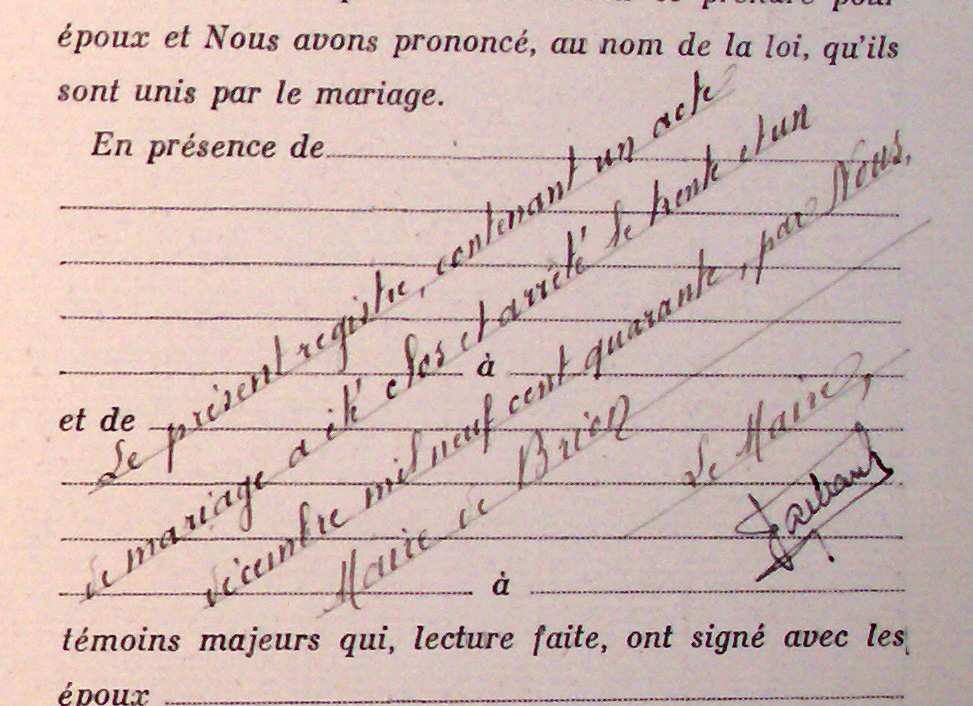 époux et Nous avons prononcé, au nom de la loi, qu'ils
sont unis par le mariage.
En présence de
Le présent registre, contenant un acte
de mariage a été clos et arrêté le trente et un
décembre mil neuf cent quarante, par Nous,
Maire de Brion
Le Maire,
à
et de
à
témoins majeurs qui, lecture faite, ont signé avec les
époux